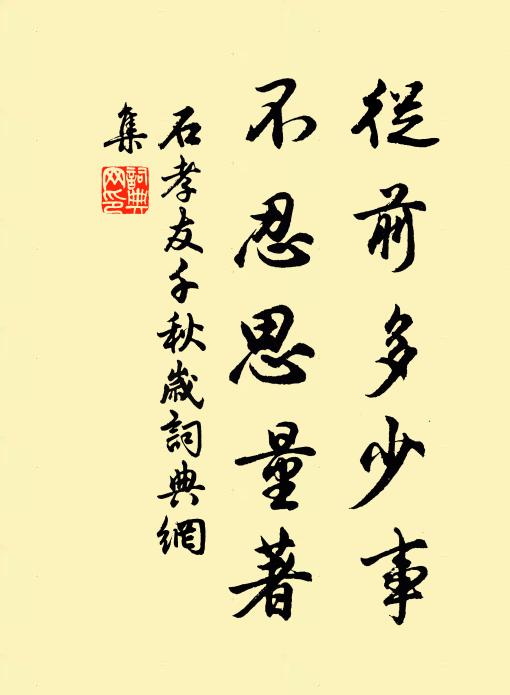 從前多少事
不忍思量著
石孝友千秋歲詞典網
集
詞典
网印